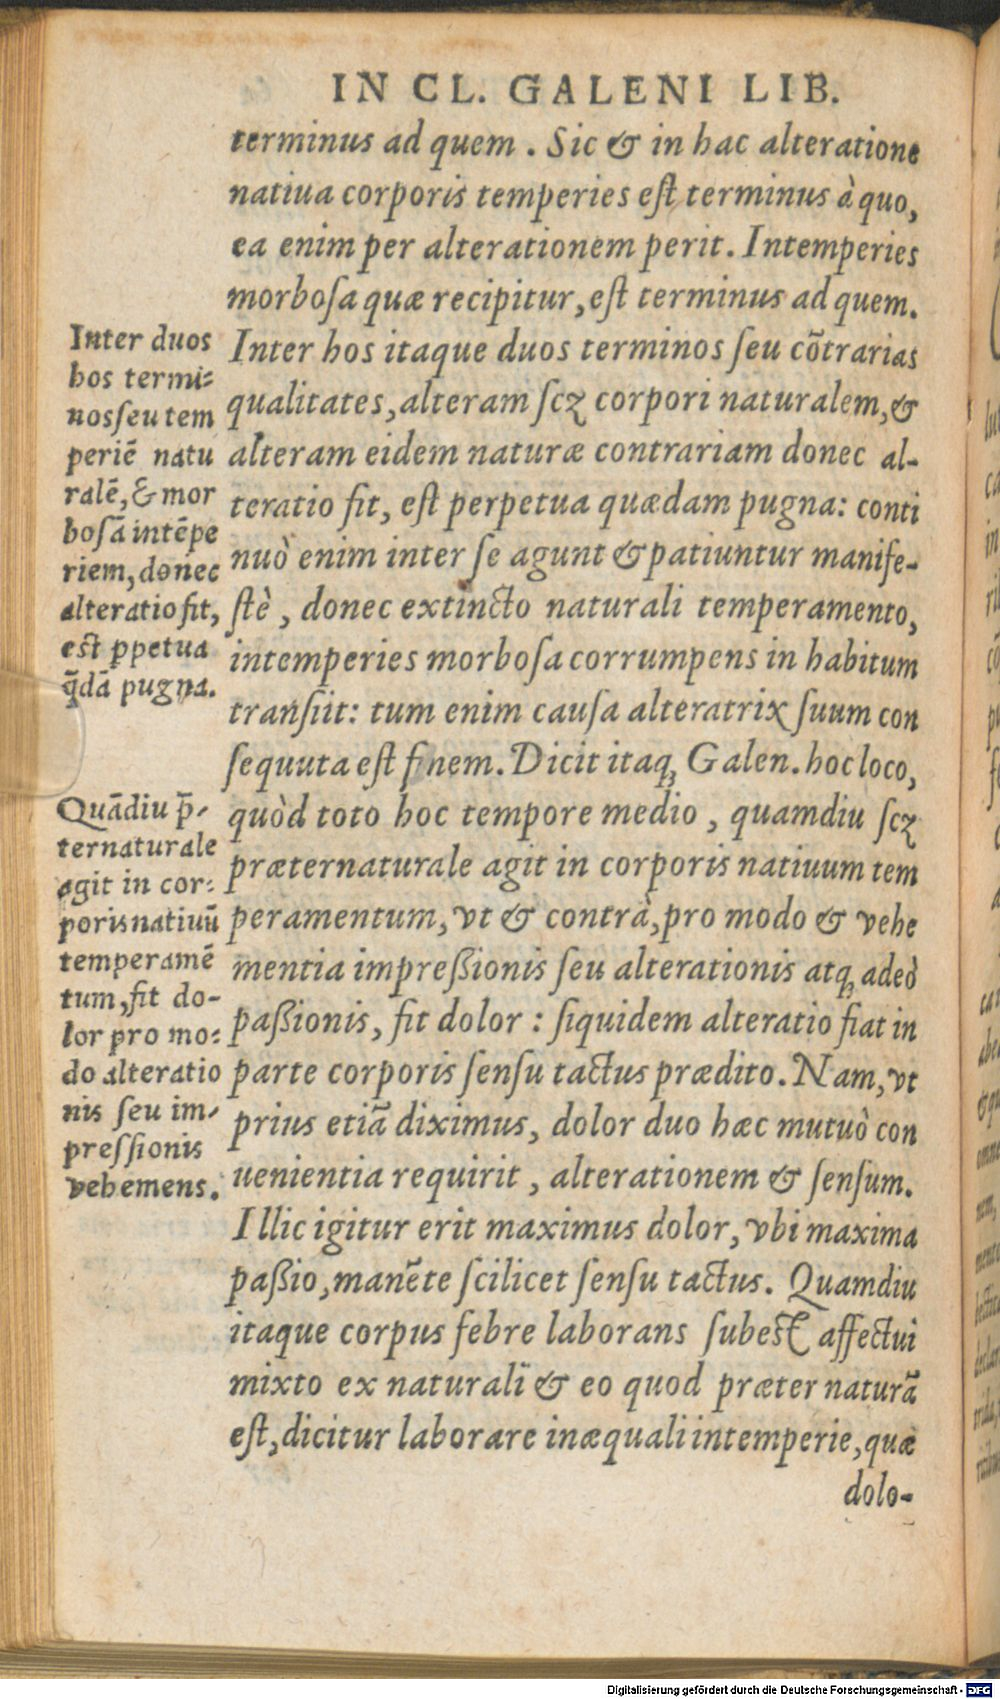 IN CL. GALENI LIB.
terminus ad quem . Sic & in hac alteratione
natiua corporis temperies eſt terminus à quo,
ea enim per alterationem perit. Intemperies
morboſa quæ recipitur, eſt terminus ad quem.
Inter hos itaque duos terminos ſeu cõtrarias
qualitates, alteram ſcꝫ corpori naturalem, &
alteram eidem naturæ contrariam donec al-
teratio fit, eſt perpetua quædam pugna: conti
nuò enim inter ſe agunt & patiuntur manife-
ſtè , donec extincto naturali temperamento,
intemperies morboſa corrumpens in habitum
tranſiit: tum enim cauſa alteratrix ſuum con
ſequuta eſt finem. Dicit itaq; Galen. hoc loco,
quòd toto hoc tempore medio , quamdiu ſcꝫ
præternaturale agit in corporis natiuum tem
peramentum, vt & contrà, pro modo & vehe
mentia impreßionis ſeu alterationis atq; adeò
paßionis, fit dolor : ſiquidem alteratio fiat in
parte corporis ſenſu tactus prædito. Nam, vt
prius etiã diximus, dolor duo hæc mutuò con
uenientia requirit , alterationem & ſenſum.
Illic igitur erit maximus dolor, vbi maxima
paßio, manẽte ſcilicet ſenſu tactus. Quamdiu
itaque corpus febre laborans ſubeſt affectui
mixto ex naturali & eo quod præter naturã
eſt, dicitur laborare inæquali intemperie, quæ
dolo-
Inter duos
hos termi-
nos ſeu tem
periẽ natu
ralẽ, & mor
boſã intẽpe
riem, donec
alteratio fit,
eſt ꝑpetua
q̃dã pugna.
Quãdiu p̃-
ternaturale
agit in cor-
poris natiuũ
temperamẽ
tum, fit do-
lor pro mo-
do alteratio
nis ſeu im-
preſſionis
vehemens.
Digitalisierung gefördert durch die Deutsche Forschungsgemeinschaft - DFG